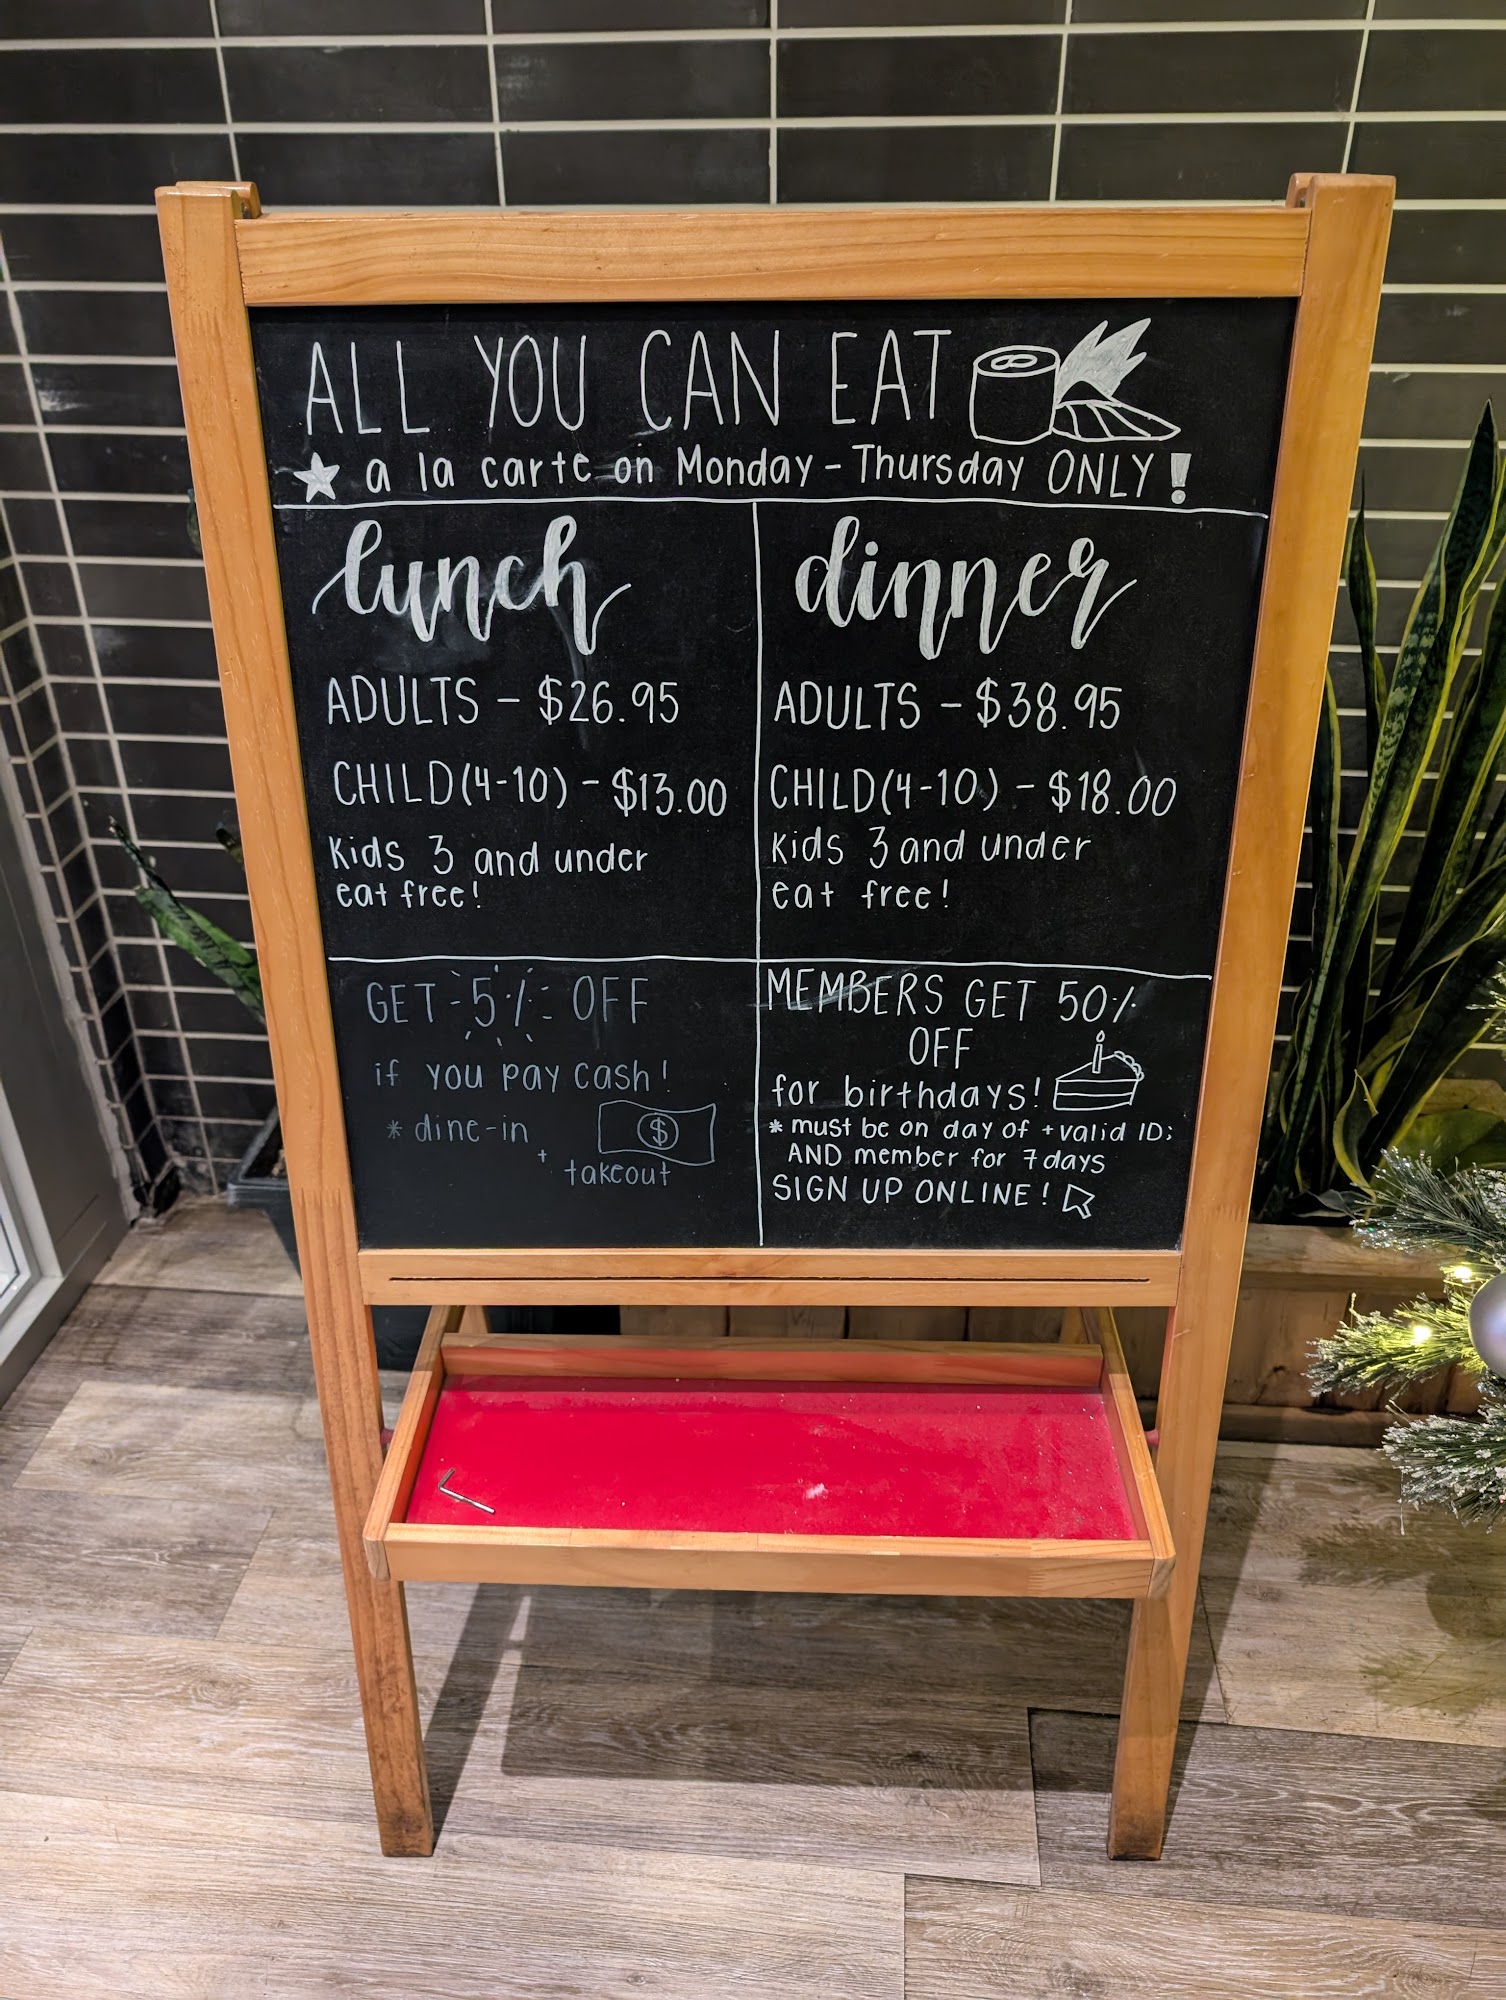 ALL YOU CAN EAT
★ a la carte on Monday - Thursday ONLY!
lunch
ADULTS - $26.95
CHILD (4-10) - $13.00
Kids 3 and under
eat free!
dinner
ADULTS - $38.95
CHILD (4-10) - $18.00
Kids 3 and under
eat free!
GET 5% OFF
if you pay cash!
* dine-in
+
takeout
$
MEMBERS GET 50%
OFF
for birthdays!
* must be on day of + valid ID;
AND member for 7 days
SIGN UP ONLINE!